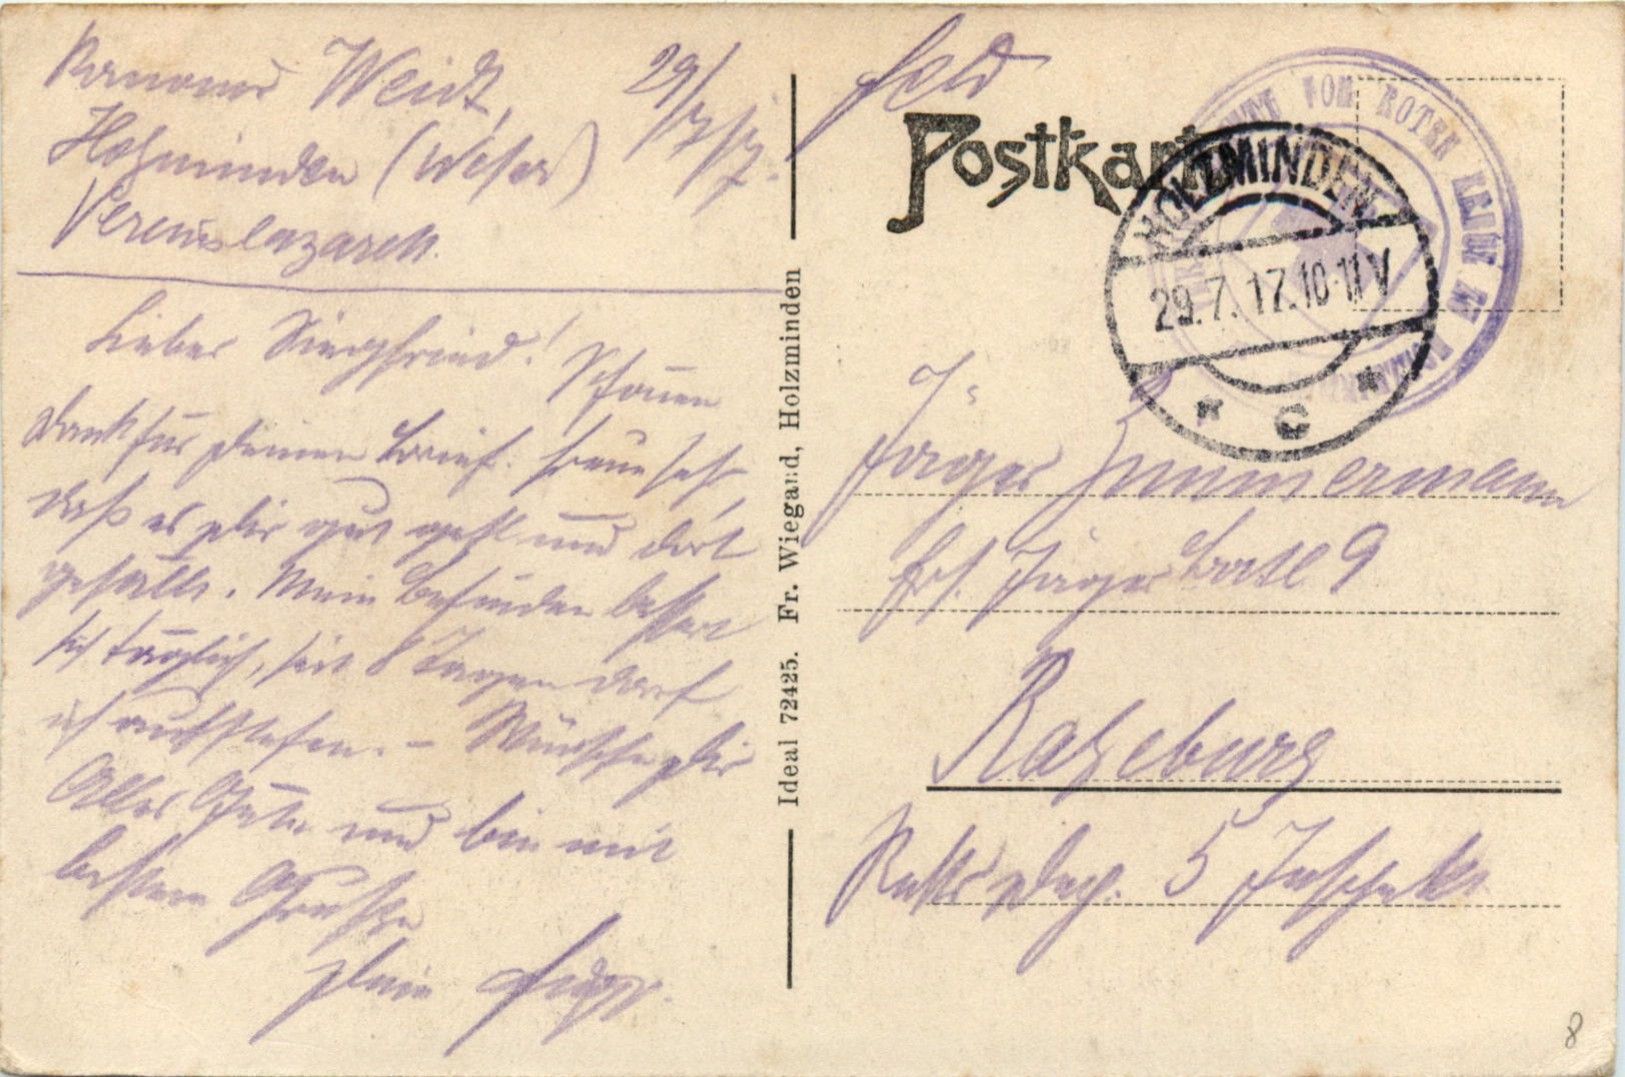 Kanonier Weidt, 29/7/17.
Holzminden (Weser)
Vereinslazarett.
Lieber Siegfried! Schönen
Dank für Deinen Brief. Freue sehr
daß es Dir gut geht und dort
gefällt. Mein Befinden bessert
sich täglich, seit 8 Tagen darf
ich aufstehen. – Wünsche Dir
Alles Gute und bin mit
besten Grüßen
Dein
Ideal 72425. Fr. Wiegand, Holzminden
Feld
Postkarte
VOM ROTEN KREUZ ZU HOLZMINDEN
HOLZMINDEN
29.7.17.10-11V
* c *
Jäger Zimmermann
Jäger Batl 9
Ratzeburg
5
8